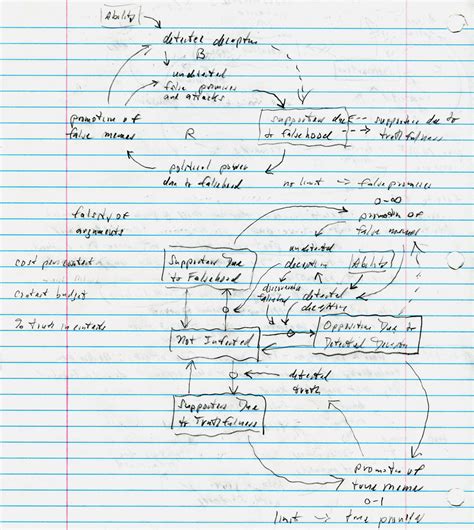 Ability
detected deception
B
undetected
false promises
and attacks
promotion of
false memes
R
supporters due
to falsehood
supporters due to
truthfulness
political power
due to falsehood
no limit → false promises
0-∞
falsity of
arguments
promotion of
false memes
undetected
deception
Ability
cost per contact
Supporters Due
to Falsehood
detected
deception
contact budget
% truth in contacts
Not Infected
Opposition Due to
Detected Deception
detected
truth
Supporters Due
to Truthfulness
promotion of
true memes
0-1
limit → true promises